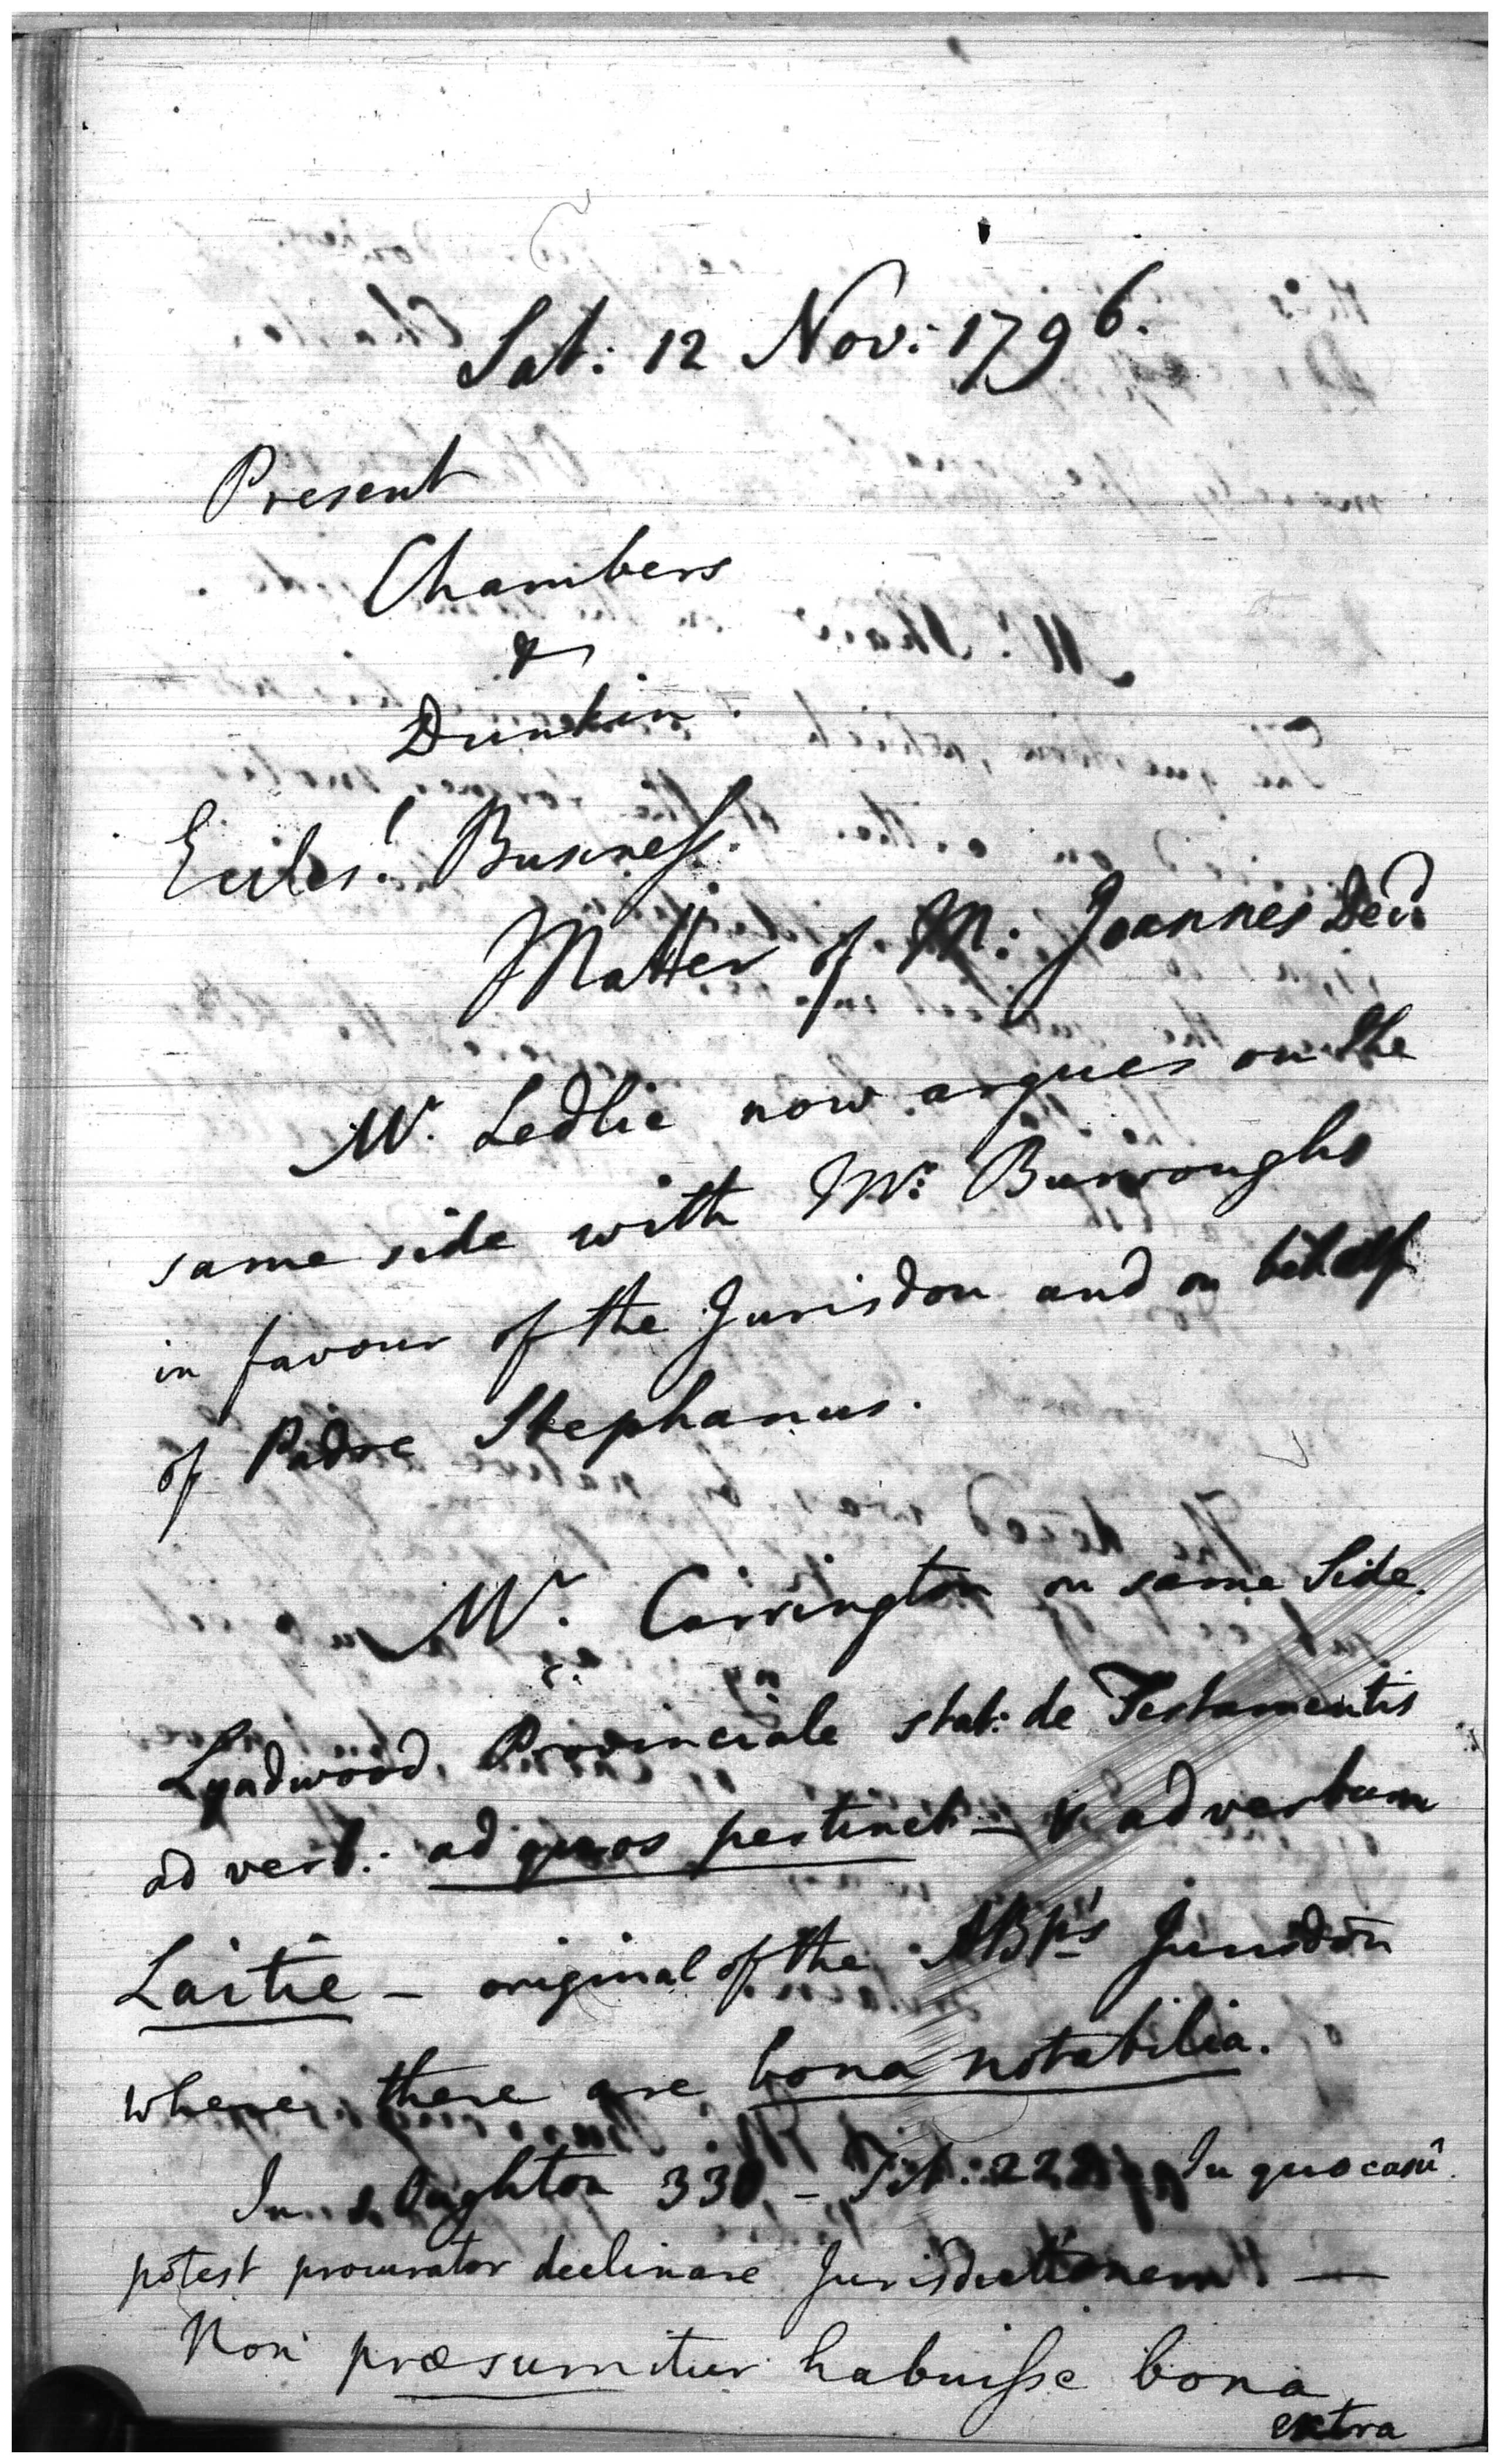 Sat: 12 Nov: 1796.
Present
Chambers
&
Dunkin.
Eccles.l Business.
Matter of M: Joannes Decd
Mr. Ledlie now argues on the
same side with Mr: Burroughs
in favour of the Jurisdon and on behalf
of Padre Stephanus.
Mr. Carrington on same Side.
Lyndwood, Provinciale stat: de Testamentis
ad verb: ad quos pertinet — & ad verbum
Laitie — original of the ABp's Jurisdon
where there are bona notabilia.
In Oughton 330, — Tit: In quo casû
potest procurator declinare Jurisdictionem. —
Non præsumitur habuisse bona
extra